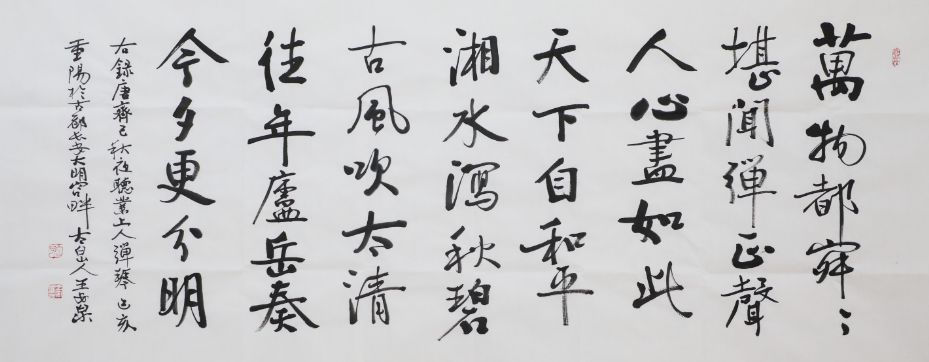 萬物都寂寂
堪聞彈正聲
人心盡如此
天下自和平
湘水瀉秋碧
古風吹太清
往年廬岳奏
今夕更分明
右錄唐齊己秋夜聽業上人彈琴 己亥
重陽於古都長安大明宮畔 太白山人王安泉